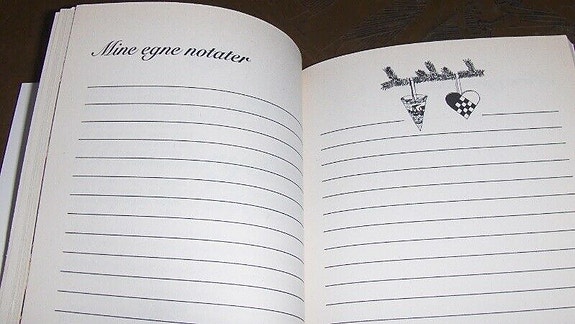 Mine egne notater